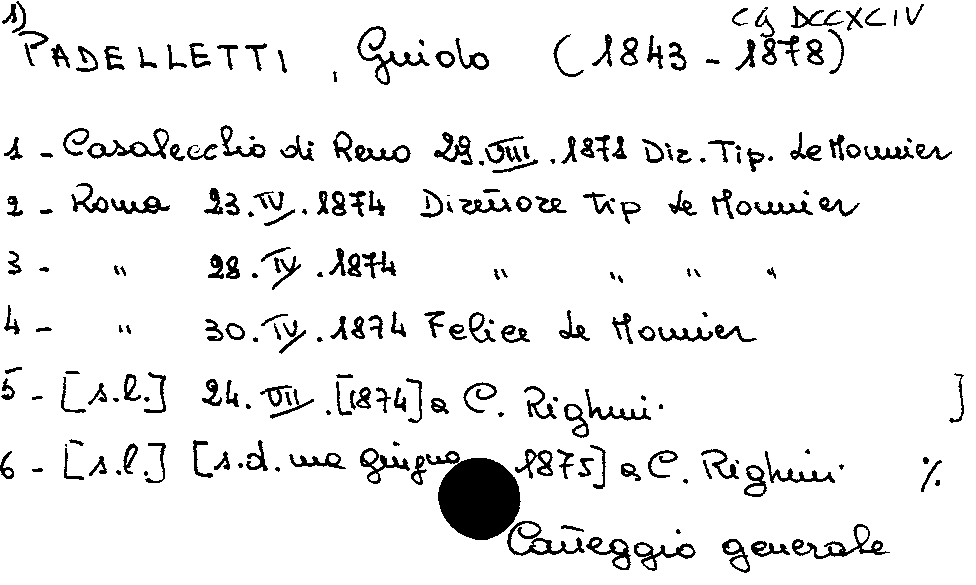 1) CG DCCXCIV
PADELLETTI, Guido (1843 - 1878)
1 - Casalecchio di Reno 29.VIII.1871 Dir. Tip. Le Monnier
2 - Roma 23.IV.1874 Direttore Tip Le Monnier
3 - " 28.IV.1874 " " " "
4 - " 30.IV.1874 Felice Le Monnier
5 - [s.l.] 24.VII.[1874] a C. Righini. ]
6 - [s.l.] [s.d. ma giugno 1875] a C. Righini. %.
Carteggio generale